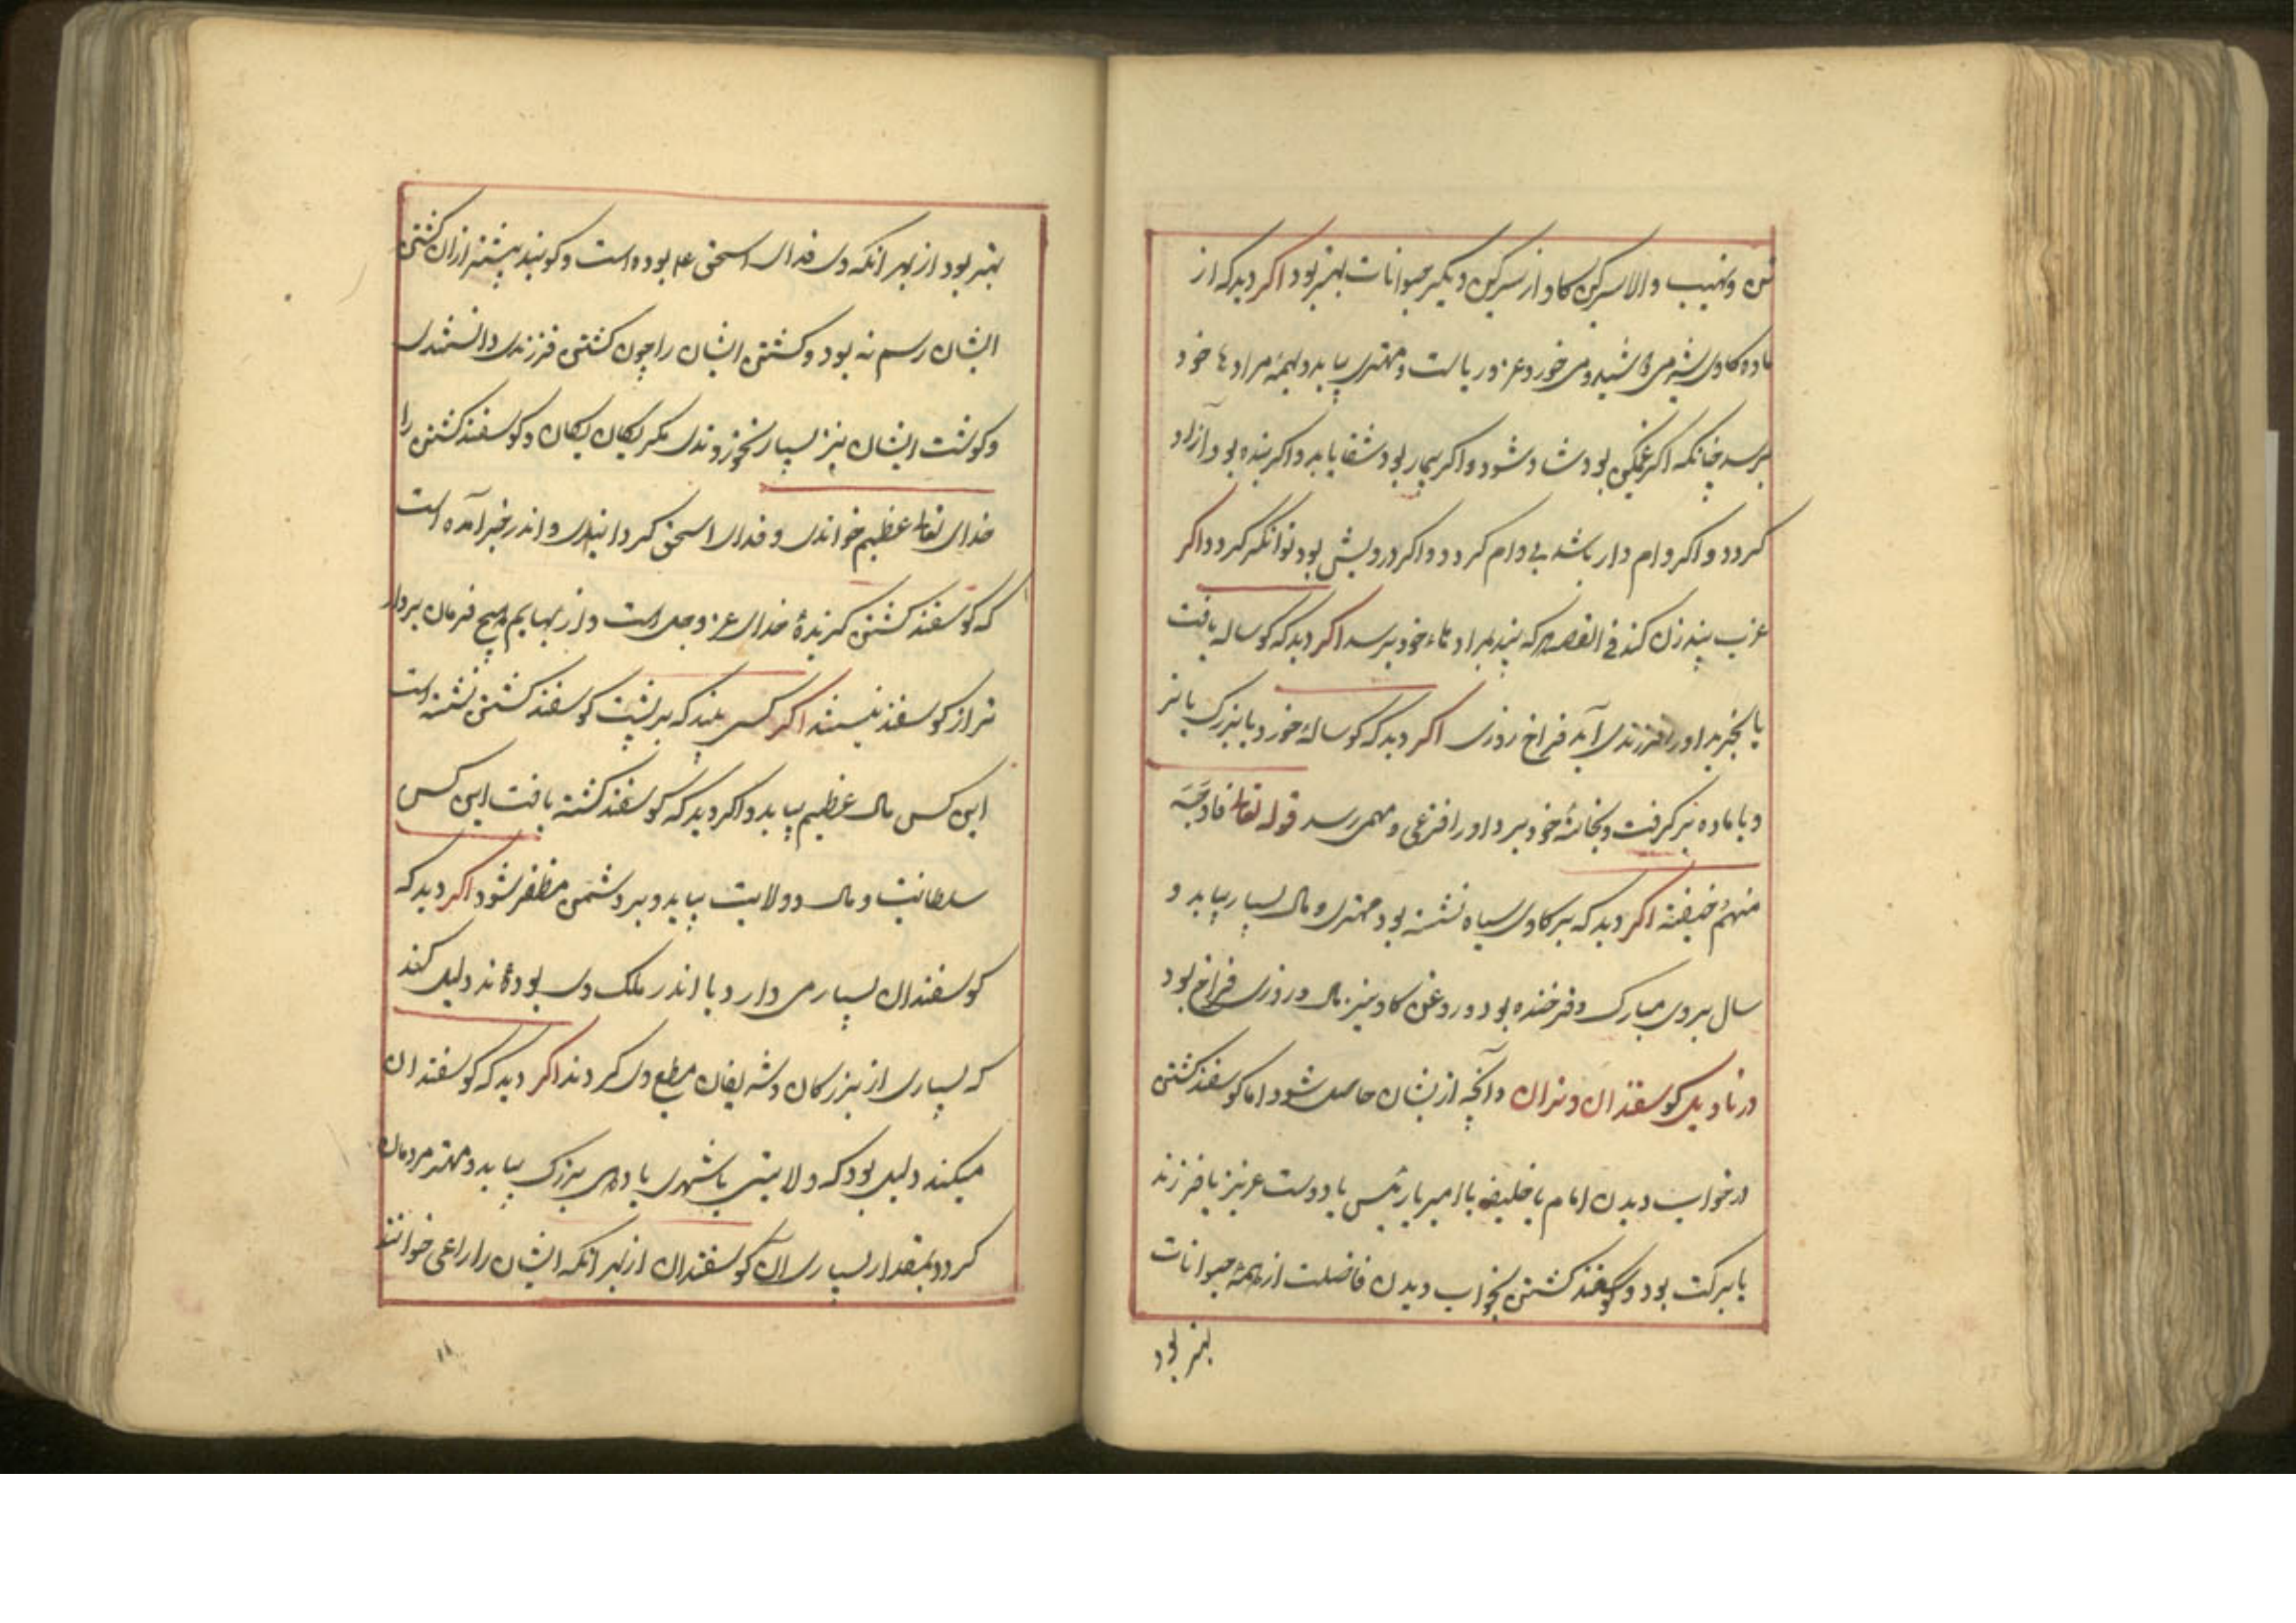 و نهیب والا سرکین کاو از سرکین دیکر حیوانات بهتر بود اکر دید که از
ماده کاوی شیر می خورد عز و ریاست و مهتری بیابد و بهمه مرادها خود
برسد چنانکه اکر غمکین بود شاد شود و اکر بیمار بود شفا یابد و اکر بنده بود آزاد
کردد و اکر وام دار باشد بی وام کردد و اکر درویش بود توانکر کردد اکر
عزب بیند زن کند فی القصه هرکه بیند بمرادهاء خود برسد اکر دید که کوساله یافت
یا بخرید او را فرزندی آید فراخ روزی اکر دید که کوسالهٔ خورد یا بزرک یا نر
و یا ماده بر کرفت و بخانهٔ خود برد او را فزعی و مهمی رسد قوله تعالی فاوجس
منهم خیفة اکر دید که بر کاوی سیاه نشسته بود مهتری و مال بسیار بیابد و
سال بروی مبارک و فرخنده بود و روغن کاو نیز مال و روزی فراخ بود
در تاویل کوسفندان و نران و آنچه ازیشان حاصل شود اما کوسفند کشتن
در خواب دیدن امام یا خلیفه یا امیر یا رئیس یا دوست عزیز یا فرزند
با برکت بود و کوسفند کشتن بخواب دیدن فاضلت از همهٔ حیوانات
بهتر بود
بهتر بود از بهر آنکه وی فدای اسحق ع م بوده است و کویند پیشتر ازان کشتن
ایشان رسم نه بود و کشتن ایشان را چون کشتن فرزندی دانستندی
و کوشت ایشان نیز بسیار نخوردندی مکر یکان یکان و کوسفند کشتن را
خدای تعالی عظیم خواندی و فدای اسحق کردانیدی و اندر خبر آمده است
که کوسفند کشتن کزیدهٔ خدای عز و جل است و از بهایم هیچ فرمان بردار
تر از کوسفند نیستند اکر کسی بیند که بر پشت کوسفند کشتن نشسته است
این کس مال عظیم بیابد و اکر دید که کوسفند کشته یافت این کس
سلطانیت و مال و ولایت بیابد و بر دشمن مظفر شود اکر دید که
کوسفندان بسیار می دارد یا اندر ملک وی بوده‌اند دلیل کند
که بسیاری از بزرکان و شریفان مطیع وی کردند اکر دید که کوسفندان
میکند دلیل بود که ولایتی یا شهری یا دهی بزرک بیابد و مهتر مردمان
کردد بمقدار بسیاری آن کوسفندان از بهر آنکه ایشان را راعی خوانند